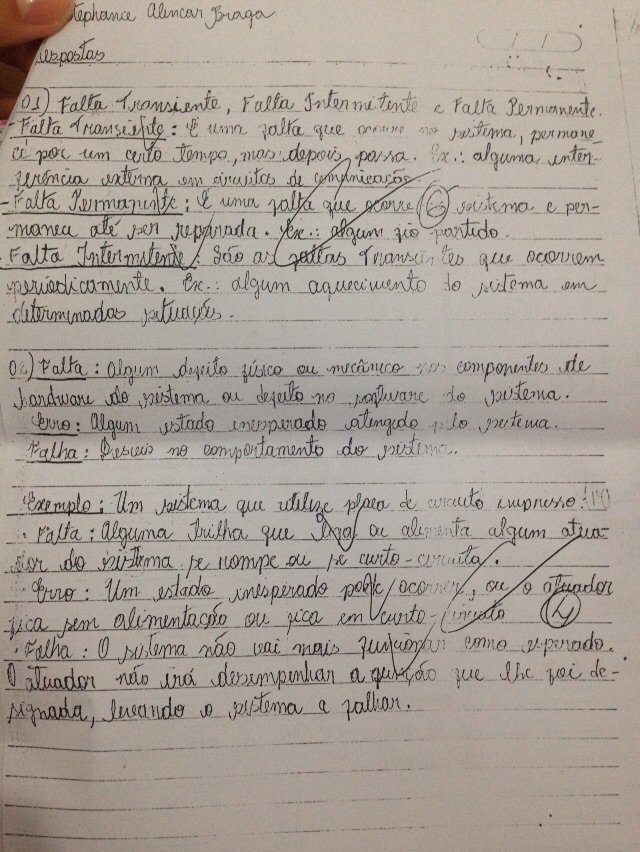 Stephanie Alencar Braga
espostas
01) Falta Transiente, Falta Intermitente e Falta Permanente.
- Falta Transiente: É uma falta que ocorre no sistema, permane-
ce por um certo tempo, mas depois passa. Ex.: alguma inter-
ferência externa em circuitos de comunicação.
- Falta Permanente: É uma falta que ocorre sistema e per-
maneca até ser reparada. Ex.: algum fio partido.
- Falta Intermitente: São as faltas Transientes que ocorrem
periodicamente. Ex.: algum aquecimento do sistema em
determinadas situações.
02) Falta: Algum defeito físico ou mecânico nos componentes de
hardware do sistema ou defeito no software do sistema.
Erro: Algum estado inesperado atengido pelo sistema.
Falha: Desvio no comportamento do sistema.
Exemplo: Um sistema que utilize placa de circuito impresso:
· Falta: Alguma Trilha que liga ou alimenta algum atua-
dor do sistema se rompe ou se curto-circuita.
· Erro: Um estado inesperado pode ocorrer, ou o atuador
fica sem alimentação ou fica em curto-circuito
· Falha: O sistema não vai mais funcionar como esperado.
O atuador não irá desempenhar a função que lhe foi de-
signada, levando o sistema a falhar.